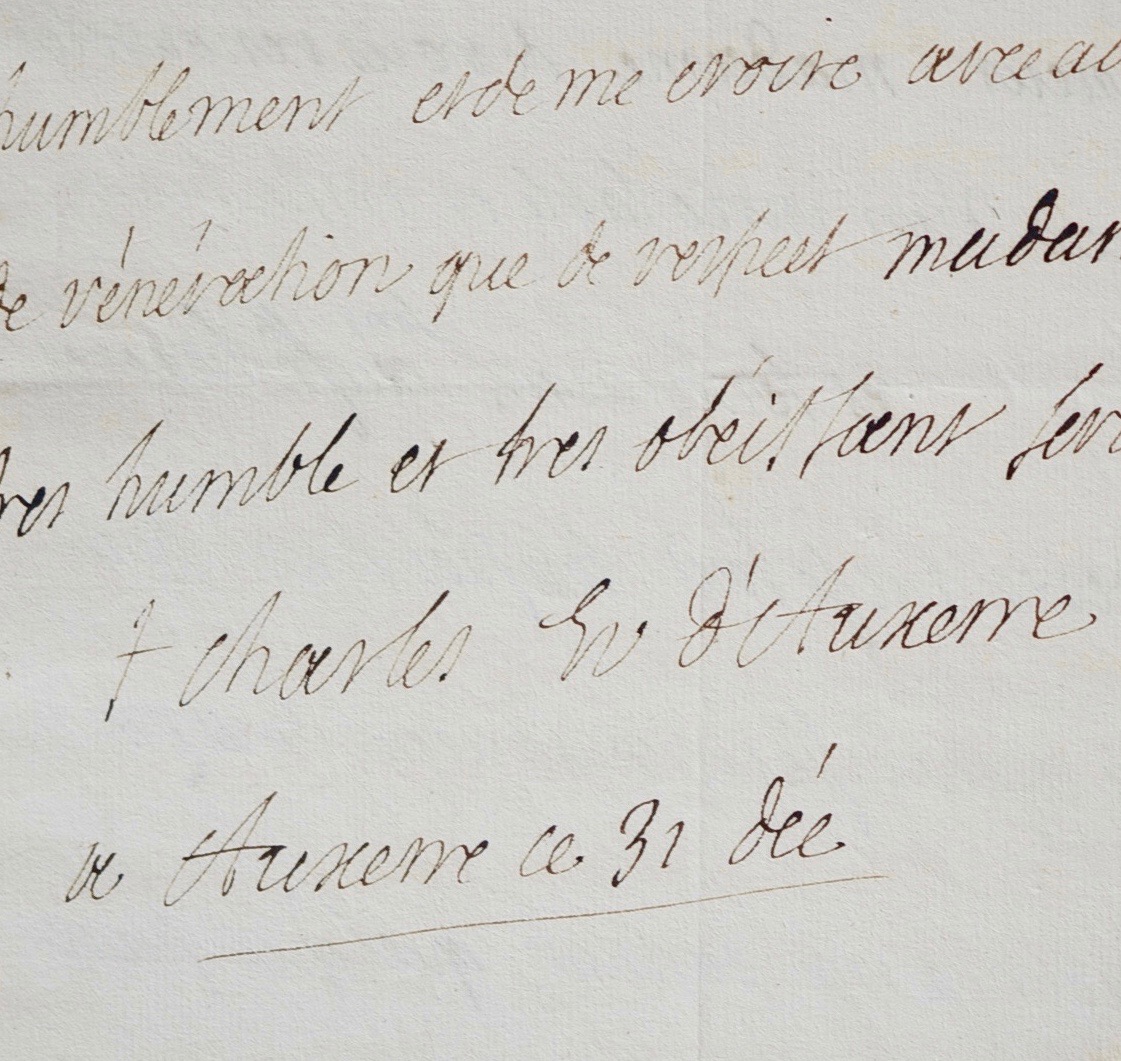 humblement et de me croire avec au
de vénération que de respect madam
tres humble et tres obéissant serv
† charles Ev d'Auxerre
a Auxerre ce 31 déc